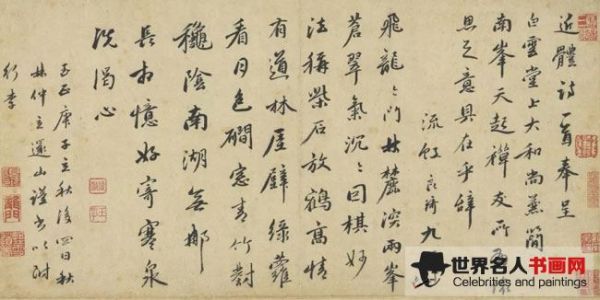 近體詩一首奉呈
白雲堂上大和尚兼簡
南峯天起禪友所
思之意具在乎辭
流虹 良琦 九
飛龍〻門林麓深兩峯
蒼翠氣沉〻圍棋妙
法稱柴石放鶴高情
有道林屋壁綠蘿
看月色硐窓青竹對
龝陰南湖無
長相憶好寄寒泉
洗渴心
至正庚子立秋後四日秋
林仲立還山謹書以附
行李
世界名人书画网
Celebrities and paintings